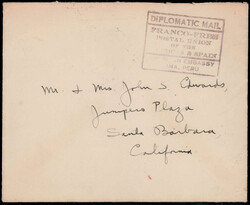 DIPLOMATIC MAIL
FRANCO-FILIPINE
POSTAL UNION
OF THE
& SPAIN
EMBASSY
PERU
Mr. & Mrs. John S. Edwards,
Junipero Plaza
Santa Barbara,
California